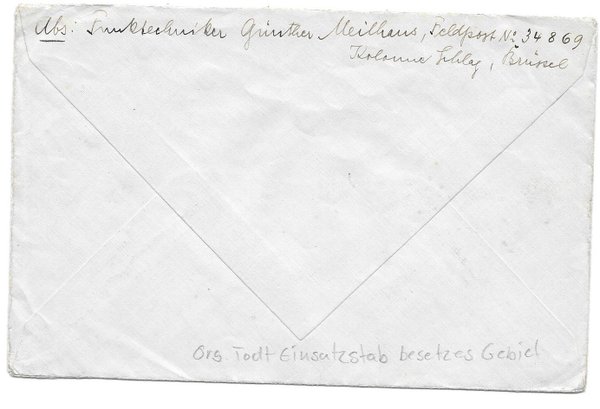 Abs: Funktechniker Günther Meilhaus, Feldpost No 34869
Kolonne Schlag, Brüssel
Org. Todt Einsatzstab besetzes Gebiet